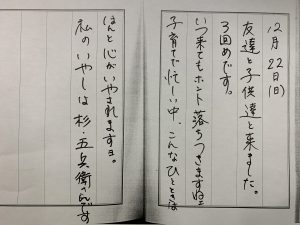 12月22日(日)
友達と子供達と来ました。
3回めです。
いつ来てもホント落ちつきますね
子育てで忙しい中、こんなひとときは
ほんと心がいやされますョ。
私のいやしは杉・五兵衛さんです